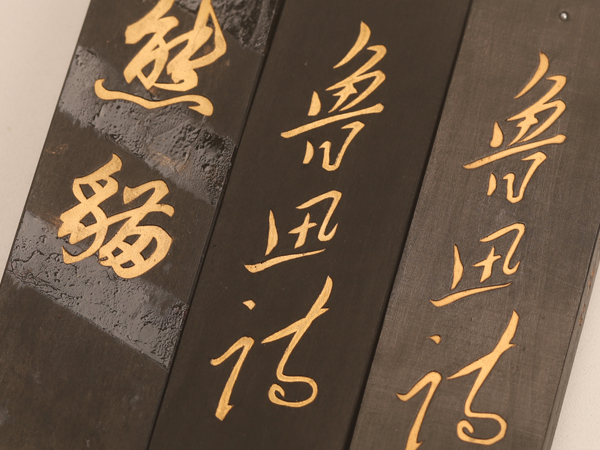 熊貓
魯迅詩
魯迅詩